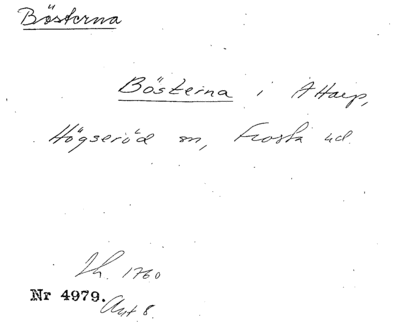 Bösterna
Bösterna i A Harp,
Högseröd sn, Frosta hd.
Lh. 1760
Nr 4979.
Akt 8.